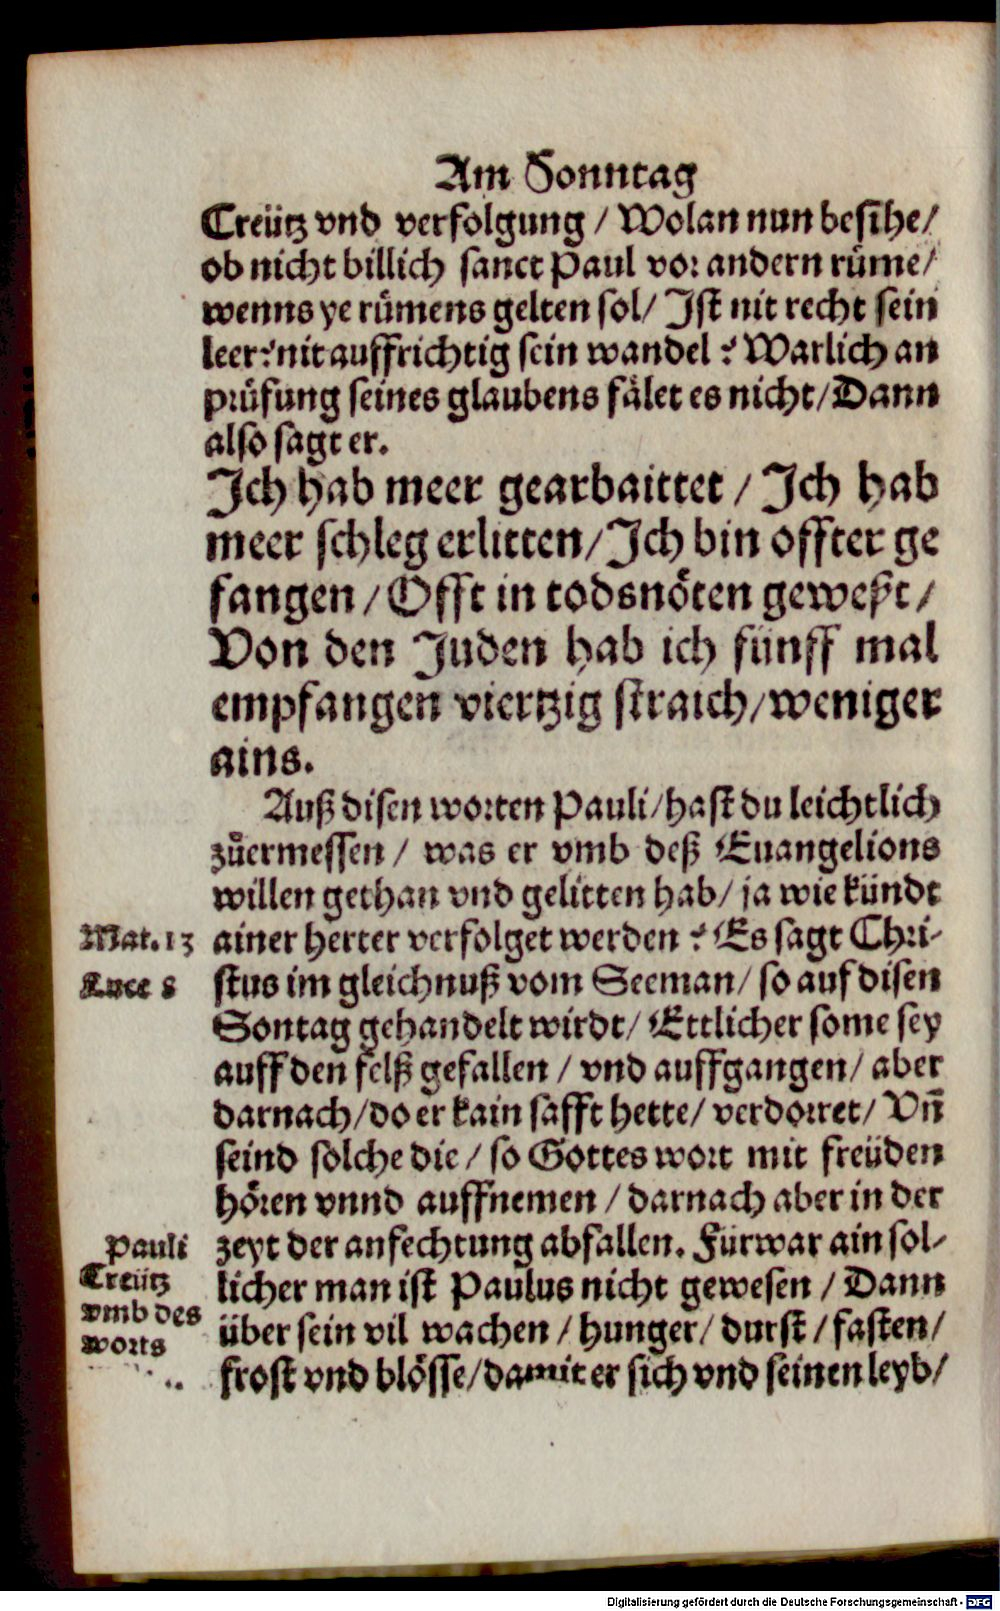 Am Sonntag
Creütz vnd verfolgung / Wolan nun besihe /
ob nicht billich sanct Paul vor andern rüme /
wenns ye rümens gelten sol / Ist nit recht sein
leer? nit auffrichtig sein wandel ? Warlich an
prüfung seines glaubens fälet es nicht / Dann
also sagt er.
Ich hab meer gearbaittet / Ich hab
meer schleg erlitten / Ich bin offter ge
fangen / Offt in todsnöten geweßt /
Von den Juden hab ich fünff mal
empfangen viertzig straich / weniger
ains.
Auß disen worten Pauli / hast du leichtlich
zůermessen / was er vmb deß Euangelions
willen gethan vnd gelitten hab / ja wie kündt
Mat. 13
ainer herter verfolget werden ? Es sagt Chri-
Luce 8
stus im gleichnuß vom Seeman / so auf disen
Sontag gehandelt wirdt / Ettlicher some sey
auff den felß gefallen / vnd auffgangen / aber
darnach / do er kain safft hette / verdorret / Vn̄
seind solche die / so Gottes wort mit freüden
hören vnnd auffnemen / darnach aber in der
Pauli
Creütz
vmb des
worts
zeyt der anfechtung abfallen. Fürwar ain sol-
licher man ist Paulus nicht gewesen / Dann
über sein vil wachen / hunger / durst / fasten /
frost vnd blösse / damit er sich vnd seinen leyb /
Digitalisierung gefördert durch die Deutsche Forschungsgemeinschaft - DFG